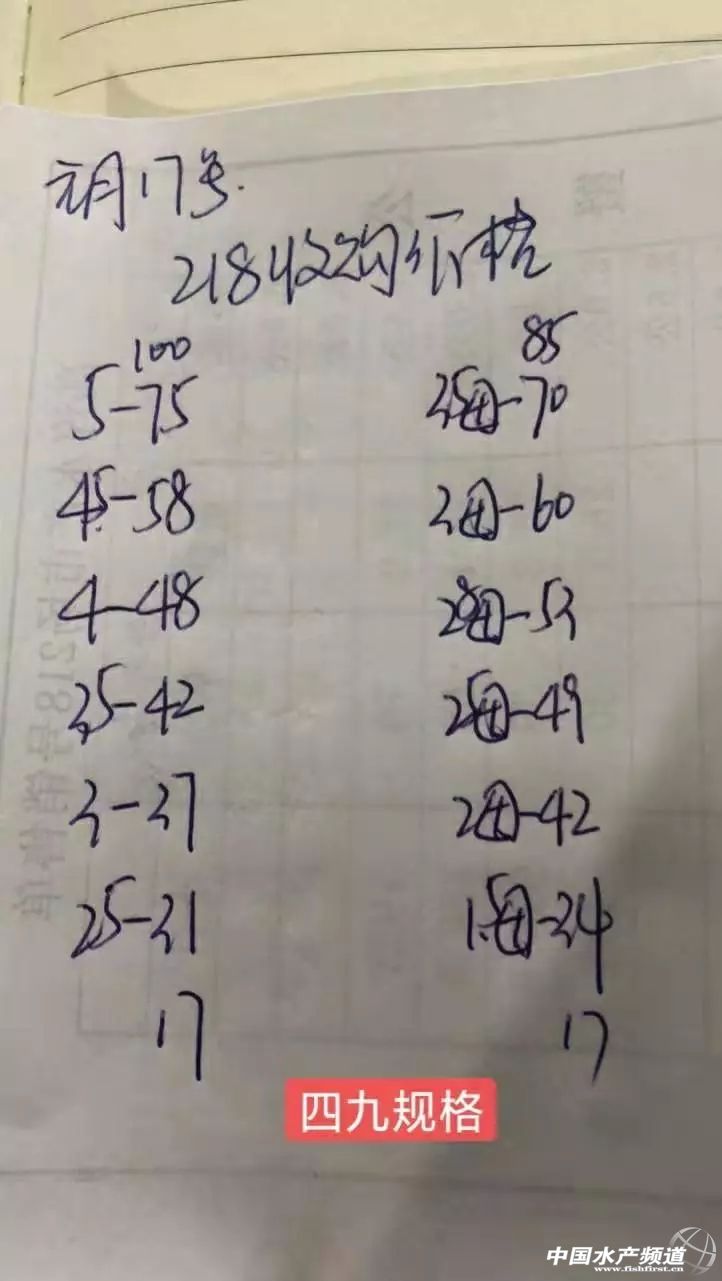 元月17号.
218收购价格
100
5-75
4.5-58
4-48
3.5-42
3-37
2.5-31
17
85
3.5母-70
3母-60
2.8母-53
2.5母-49
2母-42
1.5母-34
17
四九规格
中国水产频道
www.fishfirst.cn